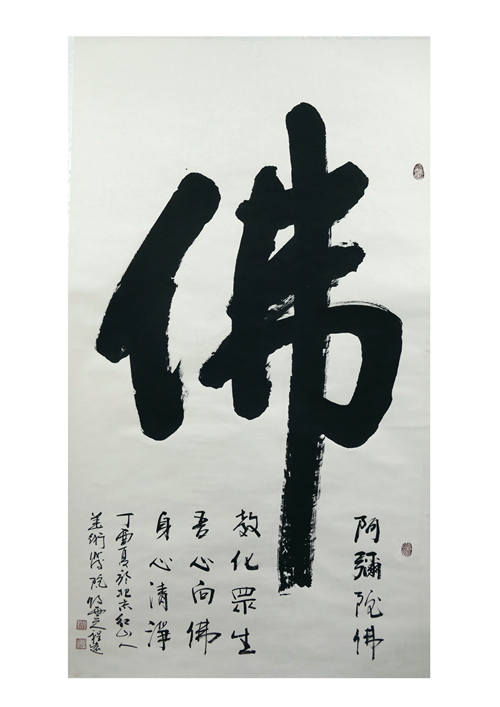 佛
阿彌陀佛
教化眾生
吾心向佛
身心清淨
丁酉夏於北京紅山人
美術學院